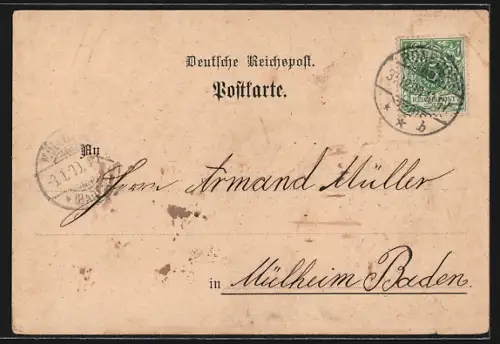 Deutsche Reichspost.
Postkarte.
An
Herrn Armand Müller
in Mülheim Baden.